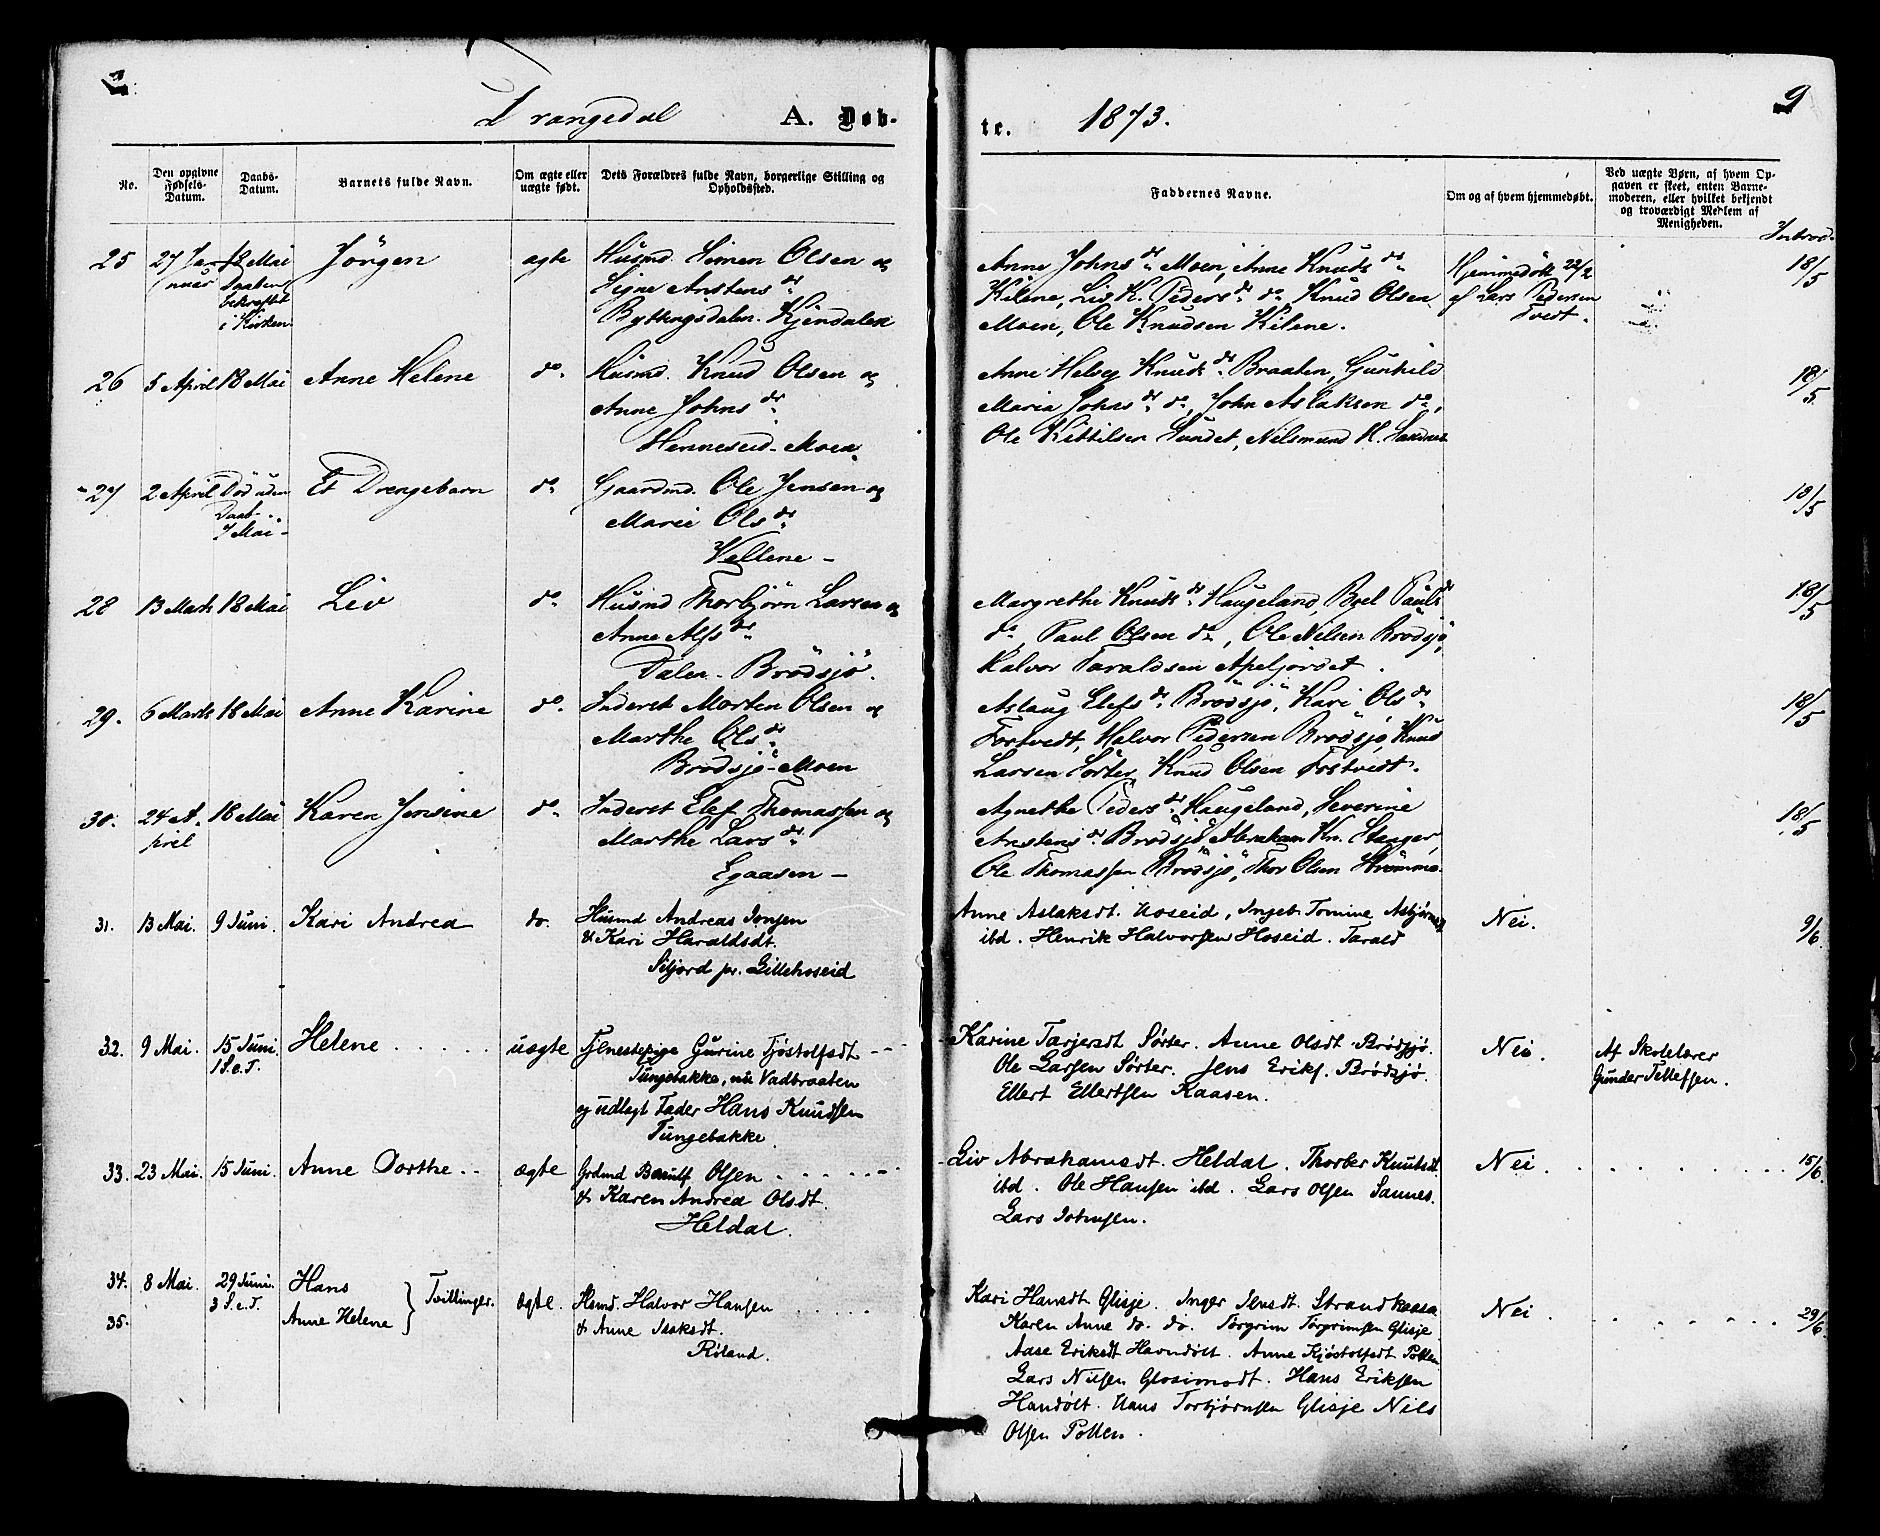 Drangedal A. Døb-
te. 1873. 9
No.
Den opgivne Fødsels-Datum.
Daabs-Datum.
Barnets fulde Navn.
Om ægte eller uægte født.
Dets Forældres fulde Navn, borgerlige Stilling og Opholdssted.
Faddernes Navne.
Om og af hvem hjemmedøbt.
Ved uægte Børn, af hvem Op-
gaven er skeet, enten Barne-
moderen, eller hvilket bekjendt
og troværdigt Medlem af
Menigheden.
Introd.
25 27 Ja- 18 Mai Jörgen ægte Husmd. Simen Olsen og
nuar Daaben Signe Anstensdr.
bekræftet Byttingsdalen. Kjendalen
i Kirken
Anne Johnsdr. Moen, Anne Knudsdr. Hjemmedöbt 22/2 18/5
Kilene, Liv K. Pedersdr. do Knud Olsen af Lars Pedersen
Moen, Ole Knudsen Kilene. Tvedt.
26 5 April 18 Mai Anne Helene do. Husmd. Knud Olsen og
Anne Johnsdr.
Henneseid-Moen.
Anne Helvig Knudsdr. Braaten, Gunhild 18/5
Maria Johnsdr. do, John Aslaksen do,
Ole Kittilsen Sundet, Nelsmund H. Sandnes
27 2 April Död uden Et Drengebarn do. Gaardmd. Ole Jensen og 18/5
Daab Marie Olsdr.
7 Mai - Vellene -
28 13 Marts 18 Mai Liv do. Husmd Thorbjörn Larsen og
Anne Alfsdr.
Dalen - Brödsjö.
Margrethe Knudsdr. Haugeland, Boel Paulsdr 18/5
do, Paul Olsen do, Ole Nilsen Brödsjö,
Halvor Taraldsen Apeljordet.
29. 6 Marts 18 Mai Anne Karine do. Inderst Morten Olsen og
Marthe Olsdr.
Brödsjö-Moen
Aslaug Elefsdr. Brödsjö, Kari Olsdr. 18/5
Fostvedt, Halvor Pedersen Brödsjö, Knud
Larsen Sörter, Knud Olsen Fostvedt.
30. 24 A- 18 Mai Karen Jensine do. Inderst Elef Thomassen og
pril Marthe Larsdr.
Egaasen -
Agnethe Pedersdr. Haugeland, Severine 18/5
Anstensdr. Brödsjö Abraham Kn. Stanger,
Ole Thomassen Brödsjö, Thor Olsen Strömme.
31. 13 Mai. 9 Juni. Kari Andrea do. Husmd Andreas Jonsen
& Kari Haraldsdt.
Siljord pr. Lillehoseid
Anne Aslaksdt. Hoseid, Ingeb. Tomine Asbjørnsd Nei. 9/6.
ibd. Henrik Halvorsen Hoseid. Tarald
32. 9 Mai. 15 Juni. Helene . . . . . uægte Tjenestepige Gurine Tjöstolfsdt
1 S.e.T. Tungebakke, nu Vadbraaten
og udlagt Fader Hans Knudsen
Tungebakke.
Karine Tarjersdt Sørter. Anne Olsdt. Brødsjø. Nei. Af Skolelærer
Ole Larsen Sørter. Jens Eriks. Brødsjø. Gunder Tellefsen.
Ellert Ellertsen Kaasen.
33. 23 Mai. 15 Juni. Anne Dorthe. ægte Grdmd Bernulf Olsen . . . .
& Karen Andrea Olsdt.
Heldal.
Liv Abrahamsdt. Heldal. Thorber Knutsdt Nei. 15/6.
ibd. Ole Hansen ibd. Lars Olsen Sannes.
Lars Johnsen.
34. 8 Mai. 29 Juni. Hans
3 S.e.T. Tvillinger. ægte. Hsmd. Halvor Hansen
35. Anne Helene & Anne Isaksdt.
Røland.
Kari Hansdt. Glisje. Inger Jensdt. Strandkaasa Nei. 29/6.
Karen Anne do. do. Torgrim Torgrimsen Glisje
Aase Eriksdt Havndølt. Anne Kjøstolfsdt Potten
Lars Nilsen Glosimodt. Hans Eriksen
Handølt. Hans Torbjørnsen Glisje Nils
Olsen Potten.